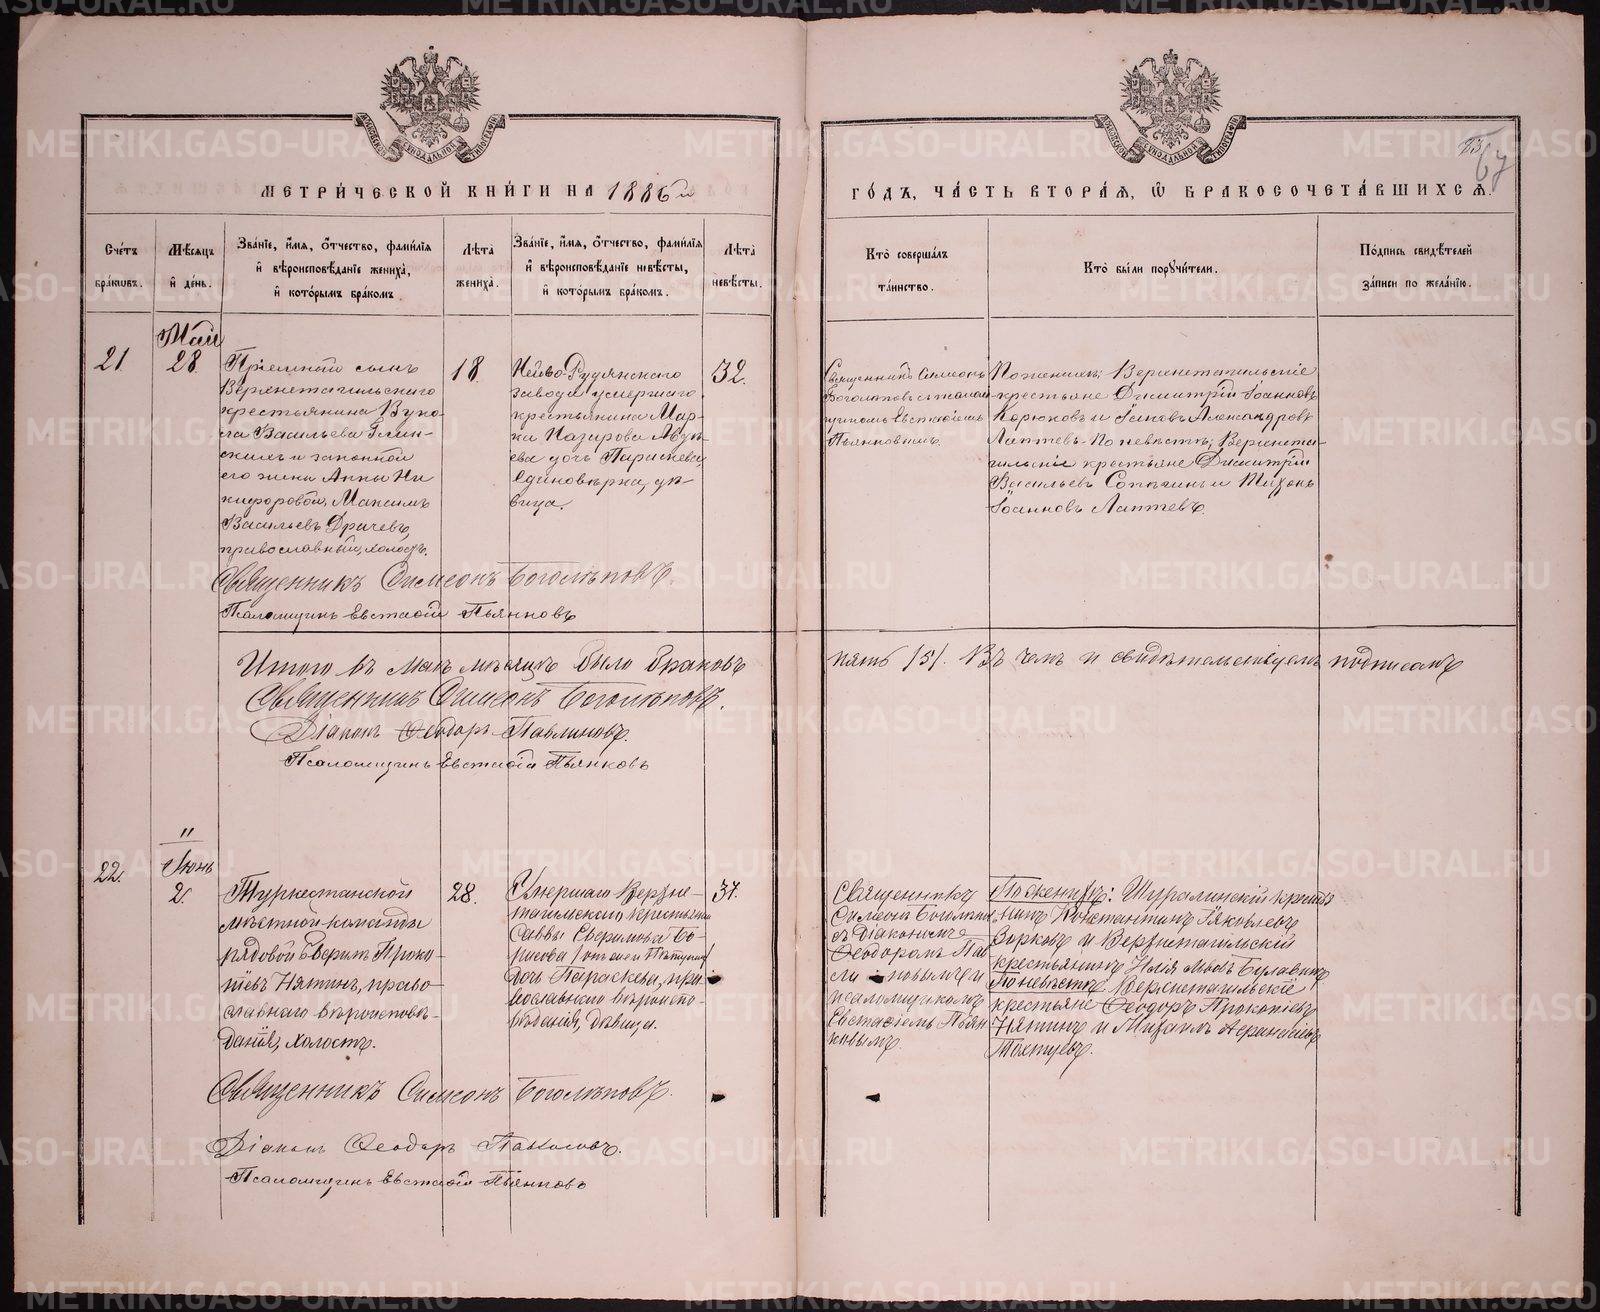 МЕТРИЧЕСКОЙ КНИГИ НА 1886й
ГОДЪ, ЧАСТЬ ВТОРАЯ, Ѡ БРАКОСОЧЕТАВШИХСЯ.
67
Счетъ браковъ.
Мѣсяцъ и день.
Званіе, имя, отчество, фамилія и вѣроисповѣданіе жениха, и которымъ бракомъ
Лѣта жениха.
Званіе, имя, отчество, фамилія и вѣроисповѣданіе невѣсты, и которымъ бракомъ.
Лѣта невѣсты.
Кто совершалъ таинство.
Кто были поручители.
Подпись свидѣтелей записи по желанію.
21.
Май
28
Пріемный сынъ
Верхнетагильскаго
крестьянина Вуко-
ла Васильева
и законной
его жены Анны Ни
кифоровой, Максимъ
Васильевъ Драчевъ,
православный, холостъ.
18.
Нейво-Рудянскаго
завода умершаго
крестьянина Мар-
ка Назарова Авдѣ-
ева дочь Параскева,
Единовѣрка, дѣ-
вица.
32.
Священникъ Симеонъ
Боголѣповъ съ псалом
щикомъ Евстаѳіемъ
Пьянковымъ.
По женихѣ: Верхнетагильскіе
крестьяне Димитрій Іоанновъ
Карюковъ и Іаковъ Александровъ
Лаптевъ. По невѣстѣ: Верхнета-
гильскіе крестьяне Димитрій
Васильевъ и Тихонъ
Іоанновъ Лаптевъ.
Священникъ Симеонъ Боголѣповъ.
Псаломщикъ Евстаѳій Пьянковъ
Итого въ маѣ мѣсяцѣ было браковъ
пять /5/. Въ чемъ и свидѣтельствуемъ подписомъ
Священникъ Симеонъ Боголѣповъ.
Діаконъ Ѳеодоръ Павлиновъ.
Псаломщикъ Евстаѳій Пьянковъ
"
22.
Іюнь
2.
Туркестанской
мѣстной команды
рядовой Зверинъ Проко-
піевъ Нятинъ, право-
славнаго вѣроисповѣ-
данія, холостъ.
28.
Умершаго Верхне-
тагильскаго крестьянина
Саввы Бо-
рисова
дочь Параскева, пра-
вославнаго вѣроиспо-
вѣданія, дѣвица.
Священникъ
Симеонъ Боголѣповъ
съ Діакономъ
Ѳеодоромъ Пав
линовымъ и
псаломщикомъ
Евстаѳіемъ Пьян
ковымъ.
По женихѣ: Шуралинскій крестья
нинъ Константинъ Іаковлевъ
Зорковъ и Верхнетагильскій
крестьянинъ Илія Львовъ Булавинъ
По невѣстѣ: Верхнетагильскіе
крестьяне Ѳеодоръ Прокопіевъ
Нятинъ и Михаилъ
Тохтуевъ.
Священникъ Симеонъ Боголѣповъ.
Діаконъ Ѳеодоръ Павлиновъ.
Псаломщикъ Евстаѳій Пьянковъ
METRIKI.GASO-URAL.RU